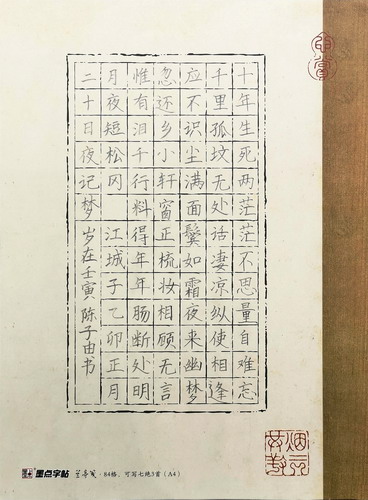 十年生死两茫茫不思量自难忘
千里孤坟无处话凄凉纵使相逢
应不识尘满面鬓如霜夜来幽梦
忽还乡小轩窗正梳妆相顾无言
惟有泪千行料得年年肠断处明
月夜短松冈 江城子乙卯正月
二十日夜记梦 岁在壬寅 陈子由书
墨点字帖 · 84格,可写七绝3首(A4)